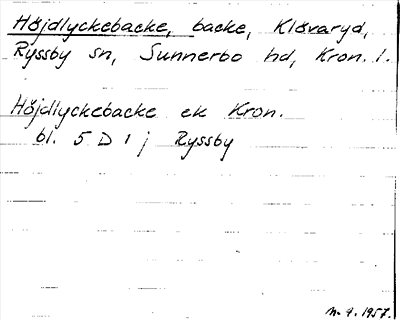 Höjdlyckebacke, backe, Klövaryd,
Ryssby sn, Sunnerbo hd, Kron. l.
Höjdlyckebacke ek Kron.
bl. 5 D 1 j Ryssby
n. 9. 1957.